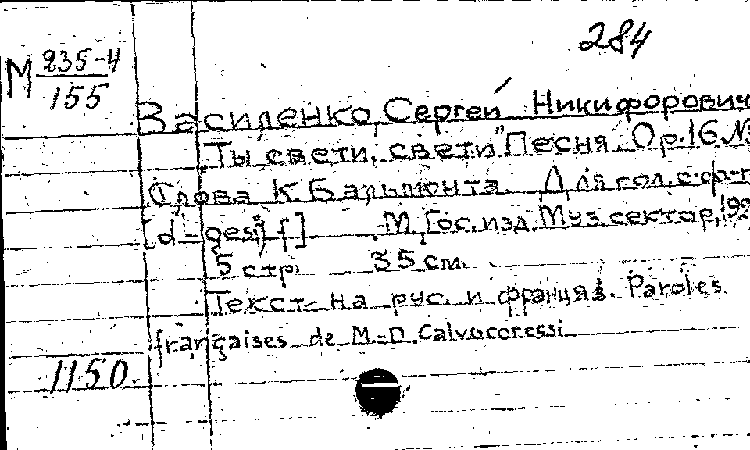 284
М 235-4
155
Василенко, Сергей Никифорович
"Ты свети, свети". Песня. Op.16 №
Слова К. Бальмонта. Для гол. с ф-п
[d - ges² f]   М. Гос. изд. Муз. сектор, 192
5 стр.   35 см.
Текст на рус. и француз. Paroles
françaises de M.-D. Calvocoressi
1150.